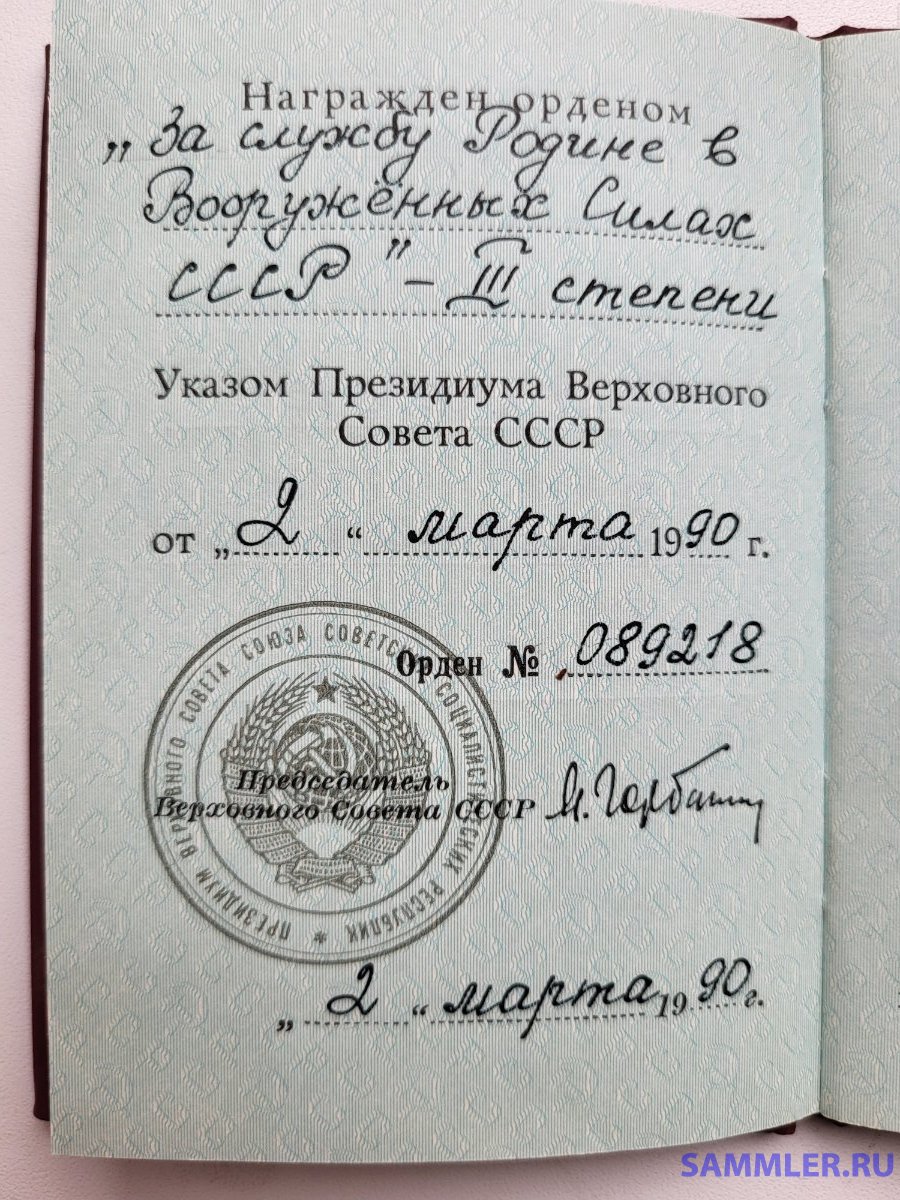 Награжден орденом
„За службу Родине в
Вооружённых Силах
СССР" – III степени
Указом Президиума Верховного
Совета СССР
от „2“ марта 1990 г.
Орден № 089218
ПРЕЗИДИУМ ВЕРХОВНОГО СОВЕТА СОЮЗА СОВЕТСКИХ СОЦИАЛИСТИЧЕСКИХ РЕСПУБЛИК *
Председатель
Верховного Совета СССР М. Горбачев
„2“ марта 1990 г.
SAMMLER.RU